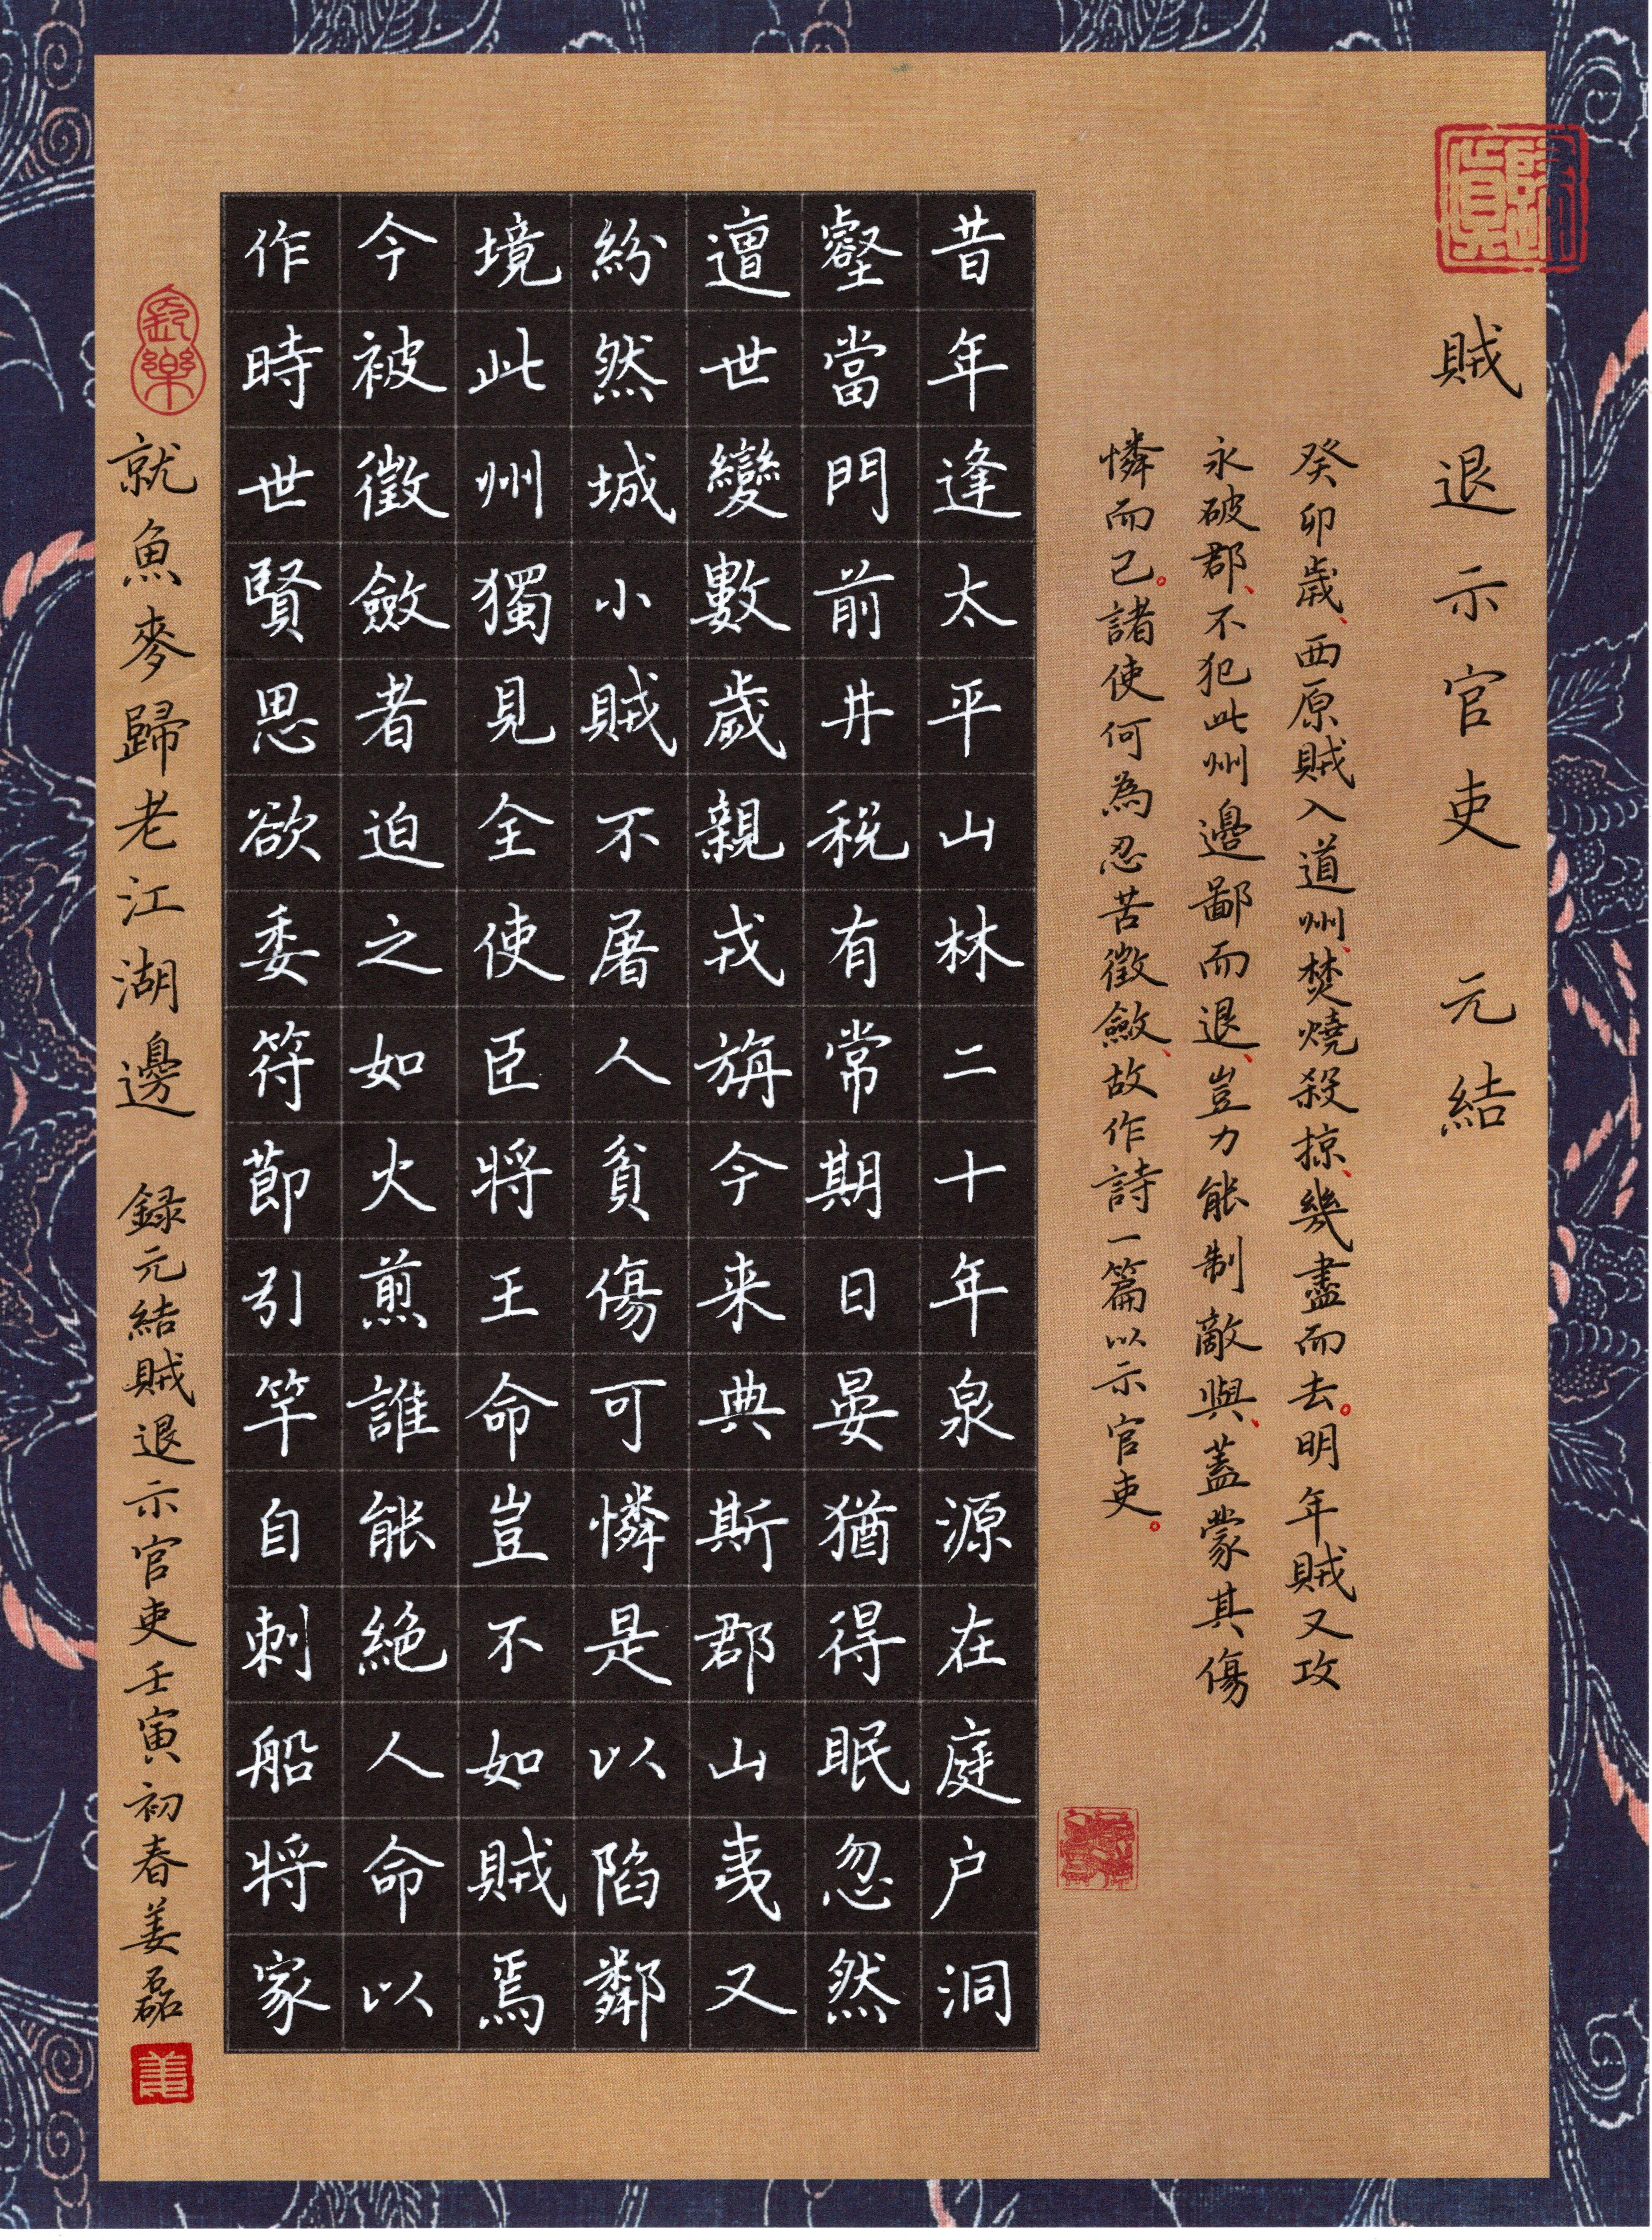 賊退示官吏 元結
癸卯歲、西原賊入道州、焚燒殺掠、幾盡而去。明年賊又攻
永破郡、不犯此州邊鄙而退、豈力能制敵與、蓋蒙其傷
憐而已。諸使何為忍苦徵斂、故作詩一篇以示官吏。
昔年逢太平山林二十年泉源在庭户洞
壑當門前井税有常期日晏猶得眠忽然
遭世變數歲親戎旃今来典斯郡山夷又
紛然城小賊不屠人貧傷可憐是以陷鄰
境此州獨見全使臣将王命豈不如賊焉
今被徵斂者迫之如火煎誰能絕人命以
作時世賢思欲委符節引竿自刺船将家
就魚麥歸老江湖邊 録元結賊退示官吏壬寅初春姜磊